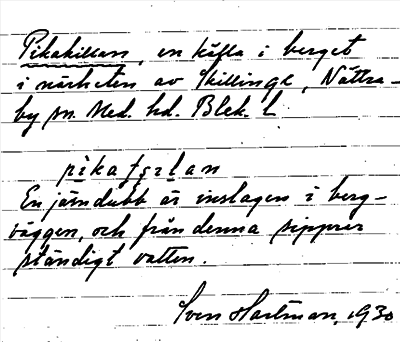 Pikakällan, en källa i berget
i närheten av Skillinge, Nättra-
by sn. Med. hd. Blek. l.
En järndubb är inslagen i berg-
väggen, och från denna sipprar
ständigt vatten.
Sven Hartman, 1930